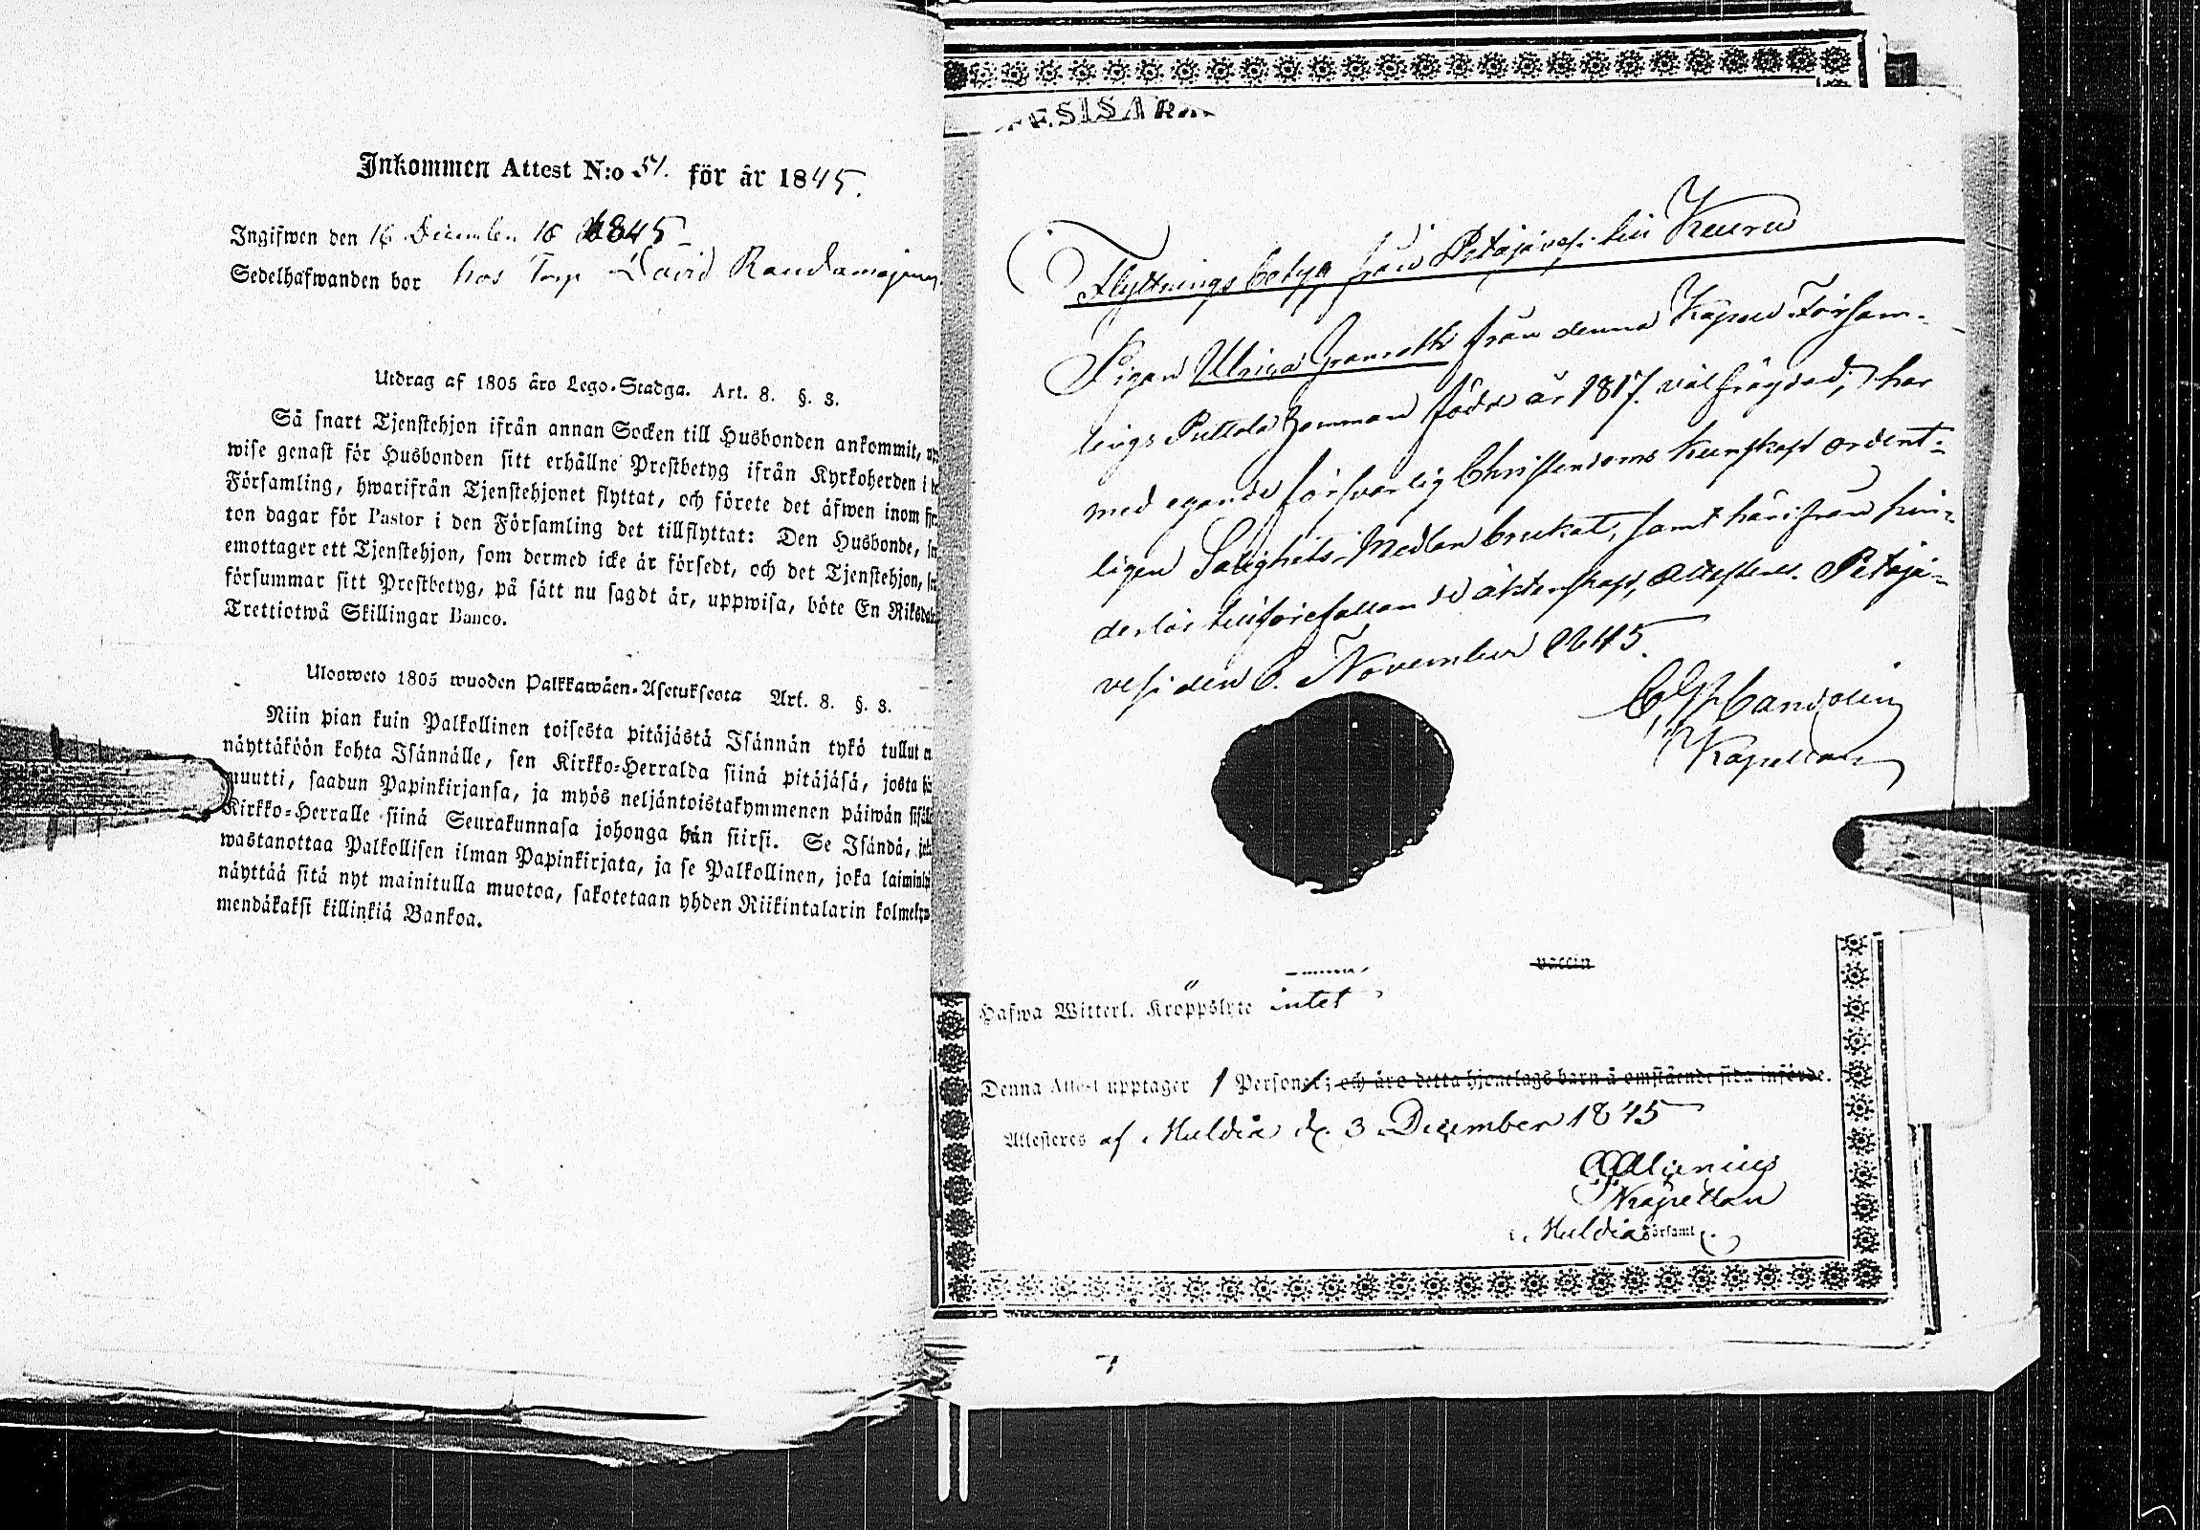 Inkommen Attest N:o 51. för år 1845.
Ingifwen den 16 December 18 1845
Sedelhafwanden bor hos Torp David Raudamajing
Utdrag af 1805 års Lego-Stadga. Art. 8. §. 3.
Så snart Tjenstehjon ifrån annan Socken till Husbonden ankommit,
wise genast för Husbonden sitt erhållne Prestbetyg ifrån Kyrkoherden i
Församling, hwarifrån Tjenstehjonet flyttat, och förete det äfwen inom
ton dagar för Pastor i den Församling det tillflyttat: Den Husbonde,
emottager ett Tjenstehjon, som dermed icke är försedt, och det Tjenstehjon,
försummar sitt Prestbetyg, på sätt nu sagdt är, uppwisa, böte En
Trettiotwå Skillingar Banco.
Uloosweto 1805 wuoden Palkkawäen-Asetuksesta Art. 8. §. 3.
Niin pian kuin Palkollinen toisesta pitäjästä Isännän tykö tullut
näyttäköön kohta Isännälle, sen Kirkko-Herralda siinä pitäjäsä, josta
muutti, saadun Papinkirjansa, ja myös neljäntoistakymmenen päiwän
Kirkko-Herralle siinä Seurakunnasa johonga hän siirsi. Se Isändä,
wastanottaa Palkollisen ilman Papinkirjata, ja se Palkollinen, joka
näyttää sitä nyt mainitulla muotoa, sakotetaan yhden Riikintalarin
mendäkaksi killinkiä Bankoa.
Flyttningsbetyg från Petäjävesi till Keuru
Pigan Ulrica Granroth från denna Kapell Försam-
lings Puttola hemman född år 1817. välfrägdad, har
med egande försvarlig Christendoms kunskap ordent-
ligen Salighets-Medlen brukat, samt härifrån hin-
derlös tillförefallande äktenskap, Attesteras. Petäjä-
vesi den 6. November 1845.
Kapellan
vaccin
Hafwa Witterl. Kroppslyte intet
Denna Attest upptager 1 Person; och äro detta hjonelags barn å omstående sida införde.
Attesteres af Muldia d. 3 December 1845
Kapellan
i Muldia Församl.